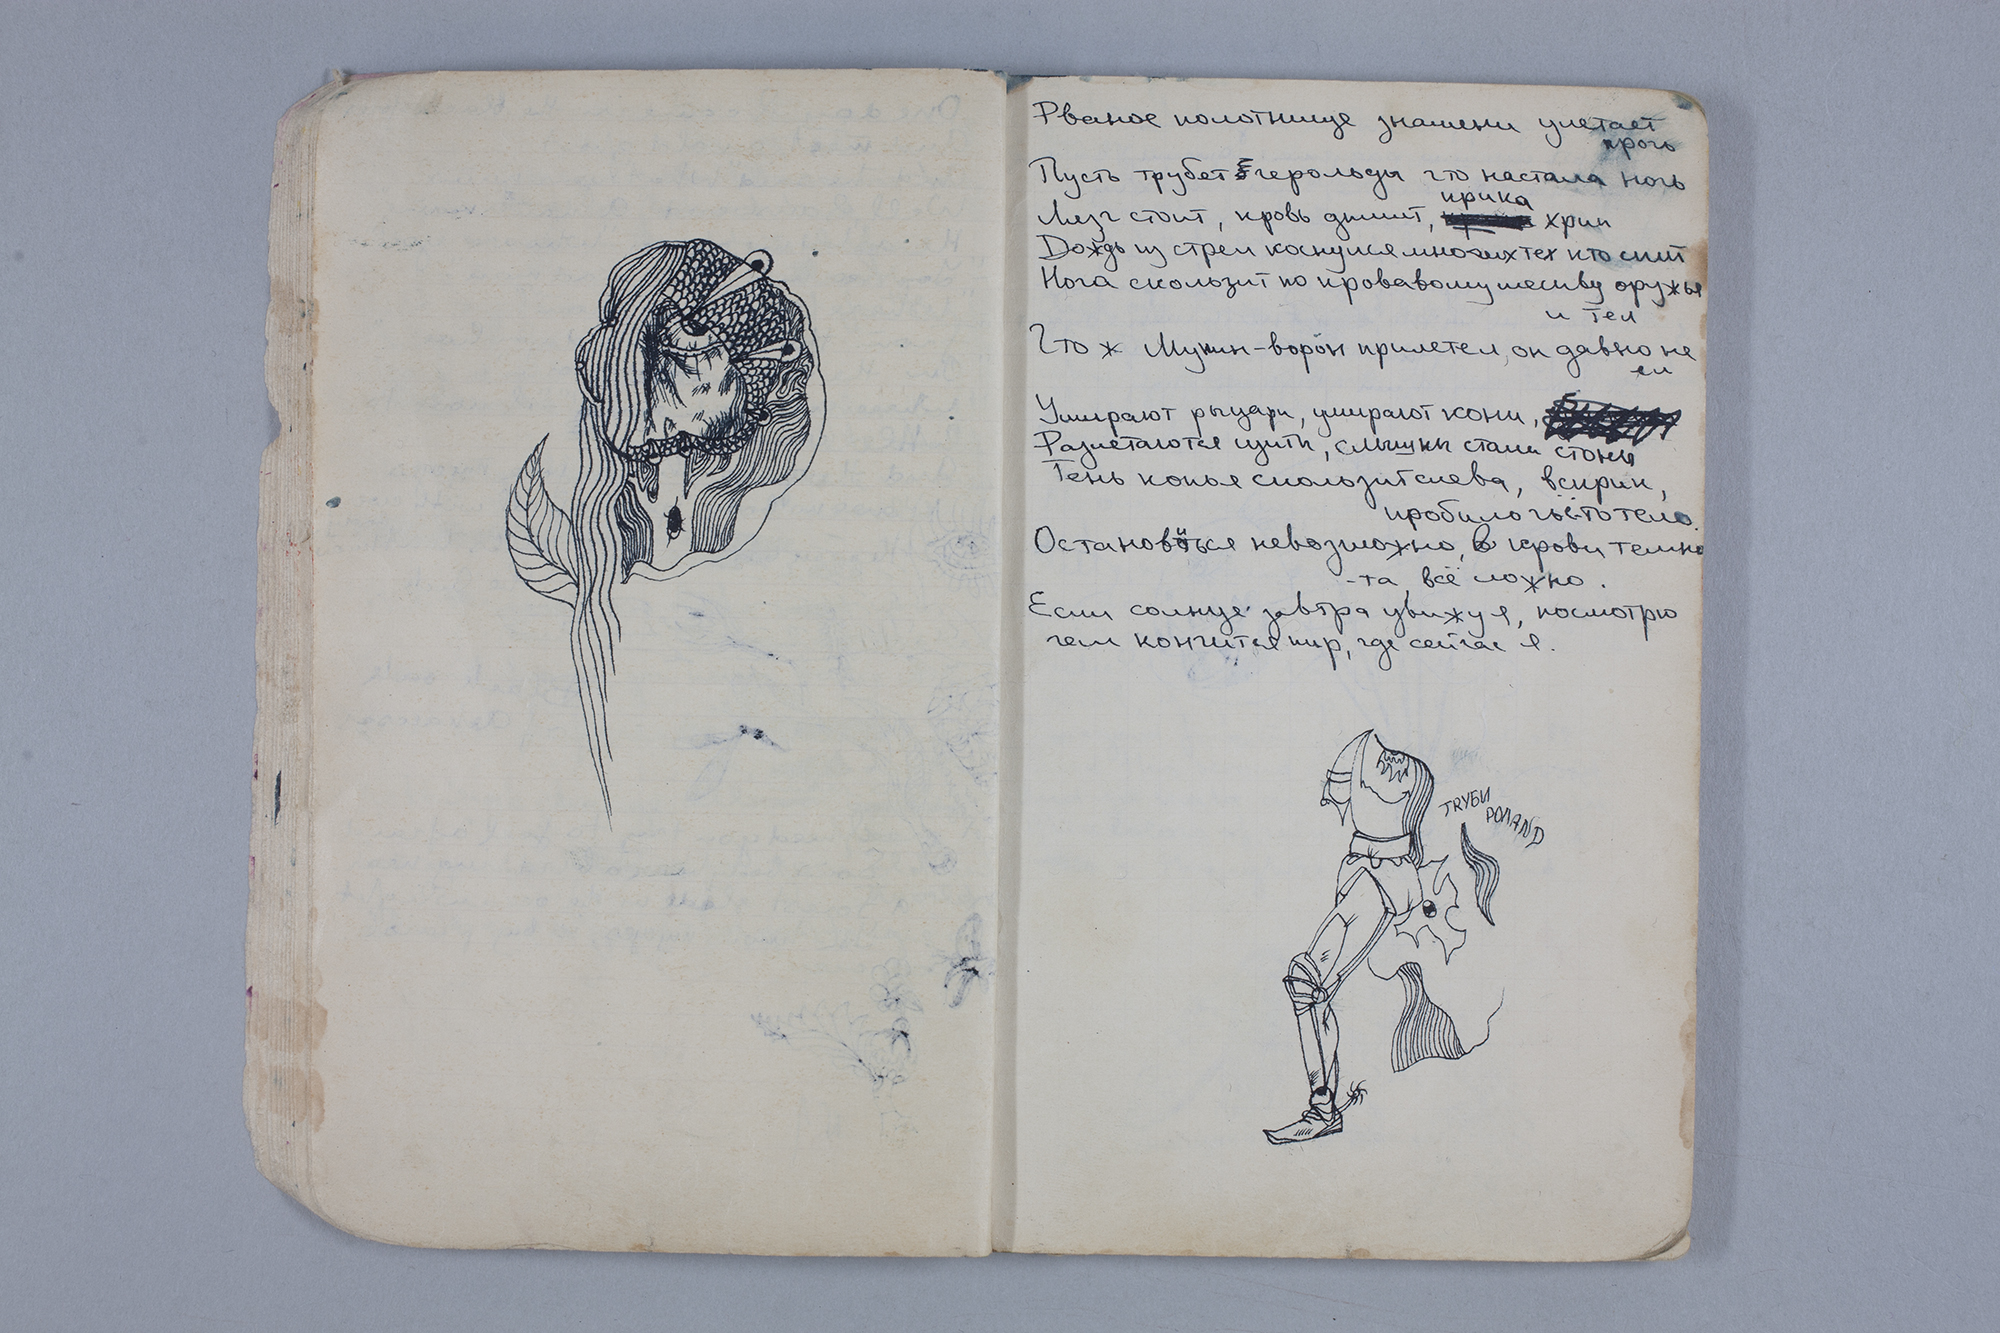 Рваное полотнище знамени улетает
прочь
Пусть трубет герольды что настала ночь
крика
Лязг стоит, кровь дымит, хрип
Дождь из стрел коснулся многих тех кто спит
Нога скользит по кровавому месиву оружья
и тел
Что ж Мунин-ворон прилетел, он давно не
ел
Умирают рыцари, умирают кони,
Разлетаются щиты, слышны стали стоны
Тень копья скользит слева, вскрик,
пробило чьё-то тело.
Остановиться невозможно, в крови темно
-та всё ложно.
Если солнце завтра увижу я, посмотрю
чем кончится пир, где сейчас я.
TRУБИ
РОЛАND